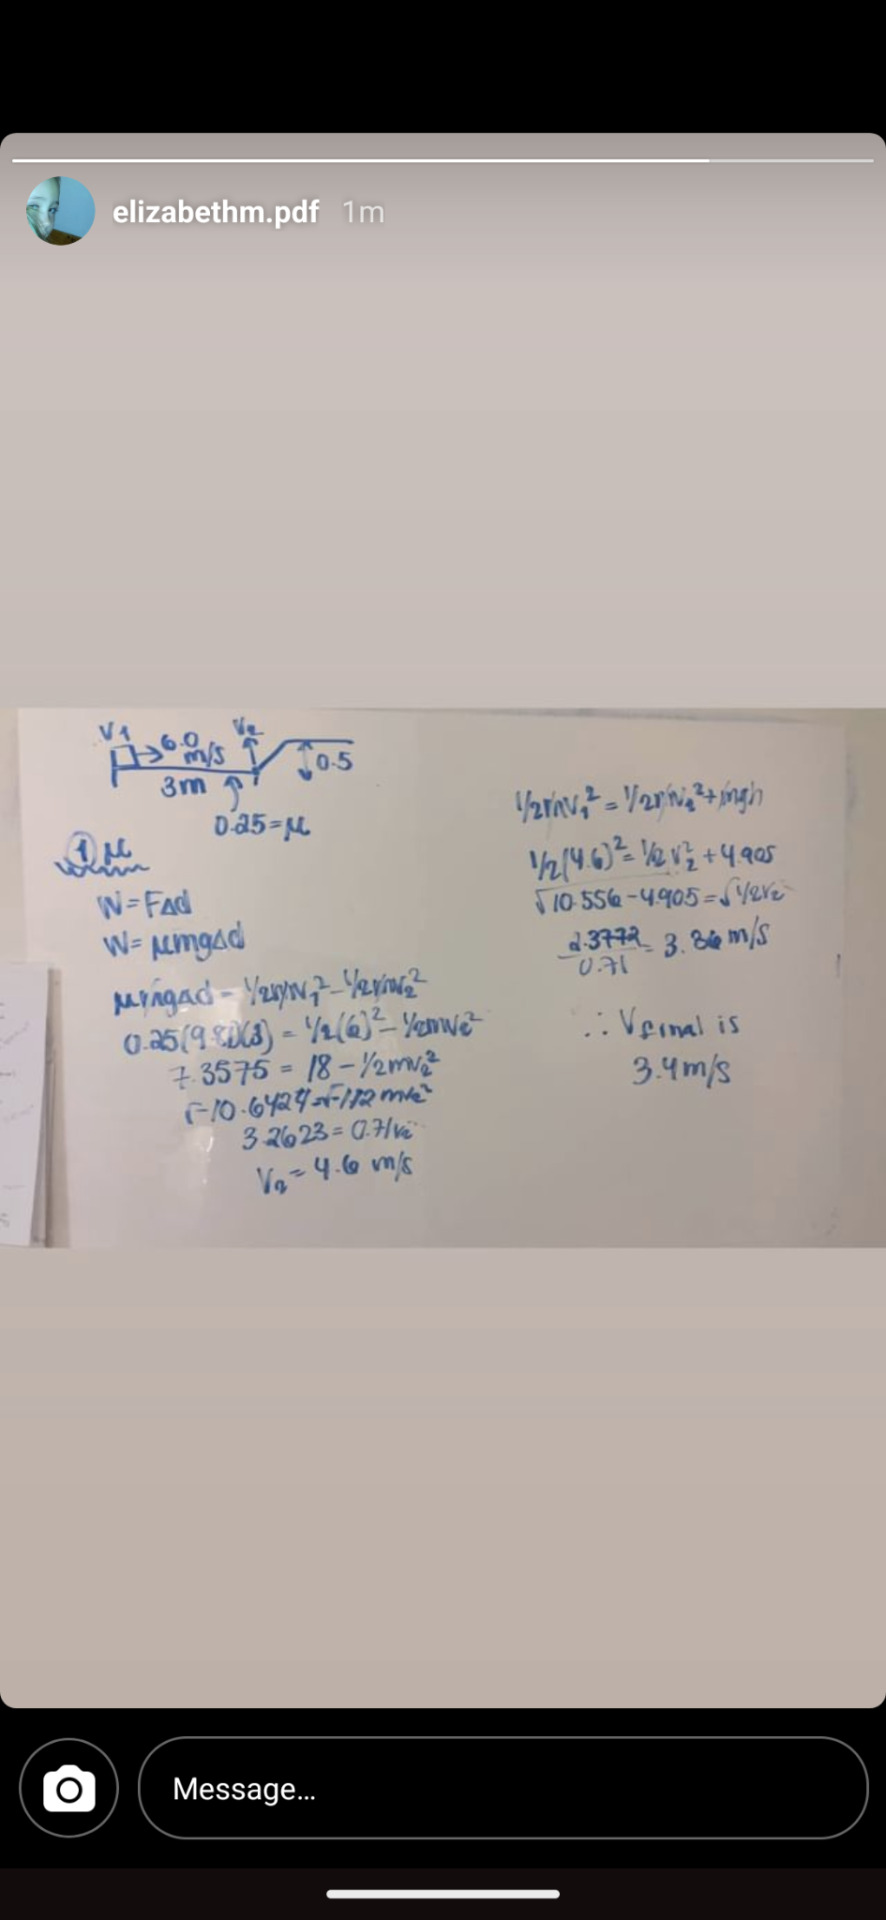 elizabethm.pdf 1m
V1
6.0 m/s
V2
3m
0.5
0.25=μ
① μ
W=FΔd
W= μmgΔd
μmgΔd = 1/2mv₁² - 1/2mv₂²
0.25(9.81)(3) = 1/2(6)² - 1/2mv₂²
7.3575 = 18 - 1/2mv₂²
√-10.6424 = √-1/2 mv₂²
3.2623 = 0.71v₂
V₂ = 4.6 m/s
1/2mv₁² = 1/2mv₂² + mgh
1/2(4.6)² = 1/2 v₂² + 4.905
√10.556-4.905 = √1/2v₂
2.3772/0.71 = 3.36 m/s
∴ Vfinal is
3.4m/s
Message...